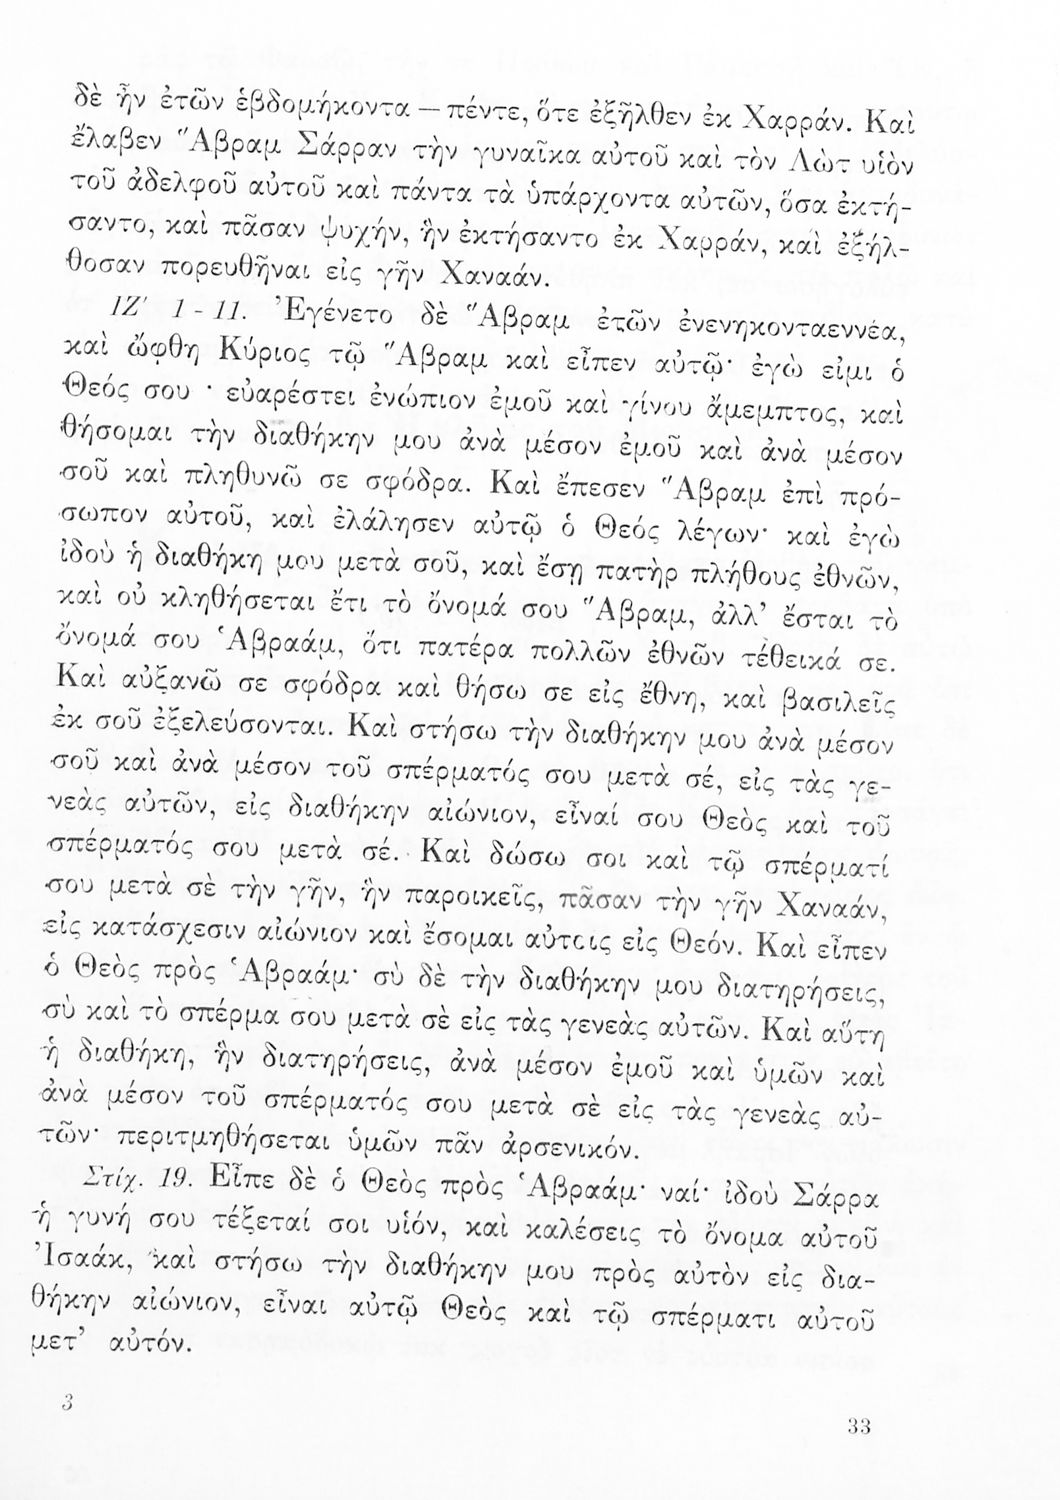 δὲ ἦν ἐτῶν ἑβδομήκοντα — πέντε, ὅτε ἐξῆλθεν ἐκ Χαρράν. Καὶ
ἔλαβεν Ἅβραμ Σάρραν τὴν γυναῖκα αὐτοῦ καὶ τὸν Λὼτ υἱὸν
τοῦ ἀδελφοῦ αὐτοῦ καὶ πάντα τὰ ὑπάρχοντα αὐτῶν, ὅσα ἐκτή-
σαντο, καὶ πᾶσαν ψυχήν, ἣν ἐκτήσαντο ἐκ Χαρράν, καὶ ἐξήλ-
θοσαν πορευθῆναι εἰς γῆν Χαναάν.
ΙΖ′ 1 - 11. Ἐγένετο δὲ Ἅβραμ ἐτῶν ἐνενηκονταεννέα,
καὶ ὤφθη Κύριος τῷ Ἅβραμ καὶ εἶπεν αὐτῷ· ἐγὼ εἰμι ὁ
Θεός σου · εὐαρέστει ἐνώπιον ἐμοῦ καὶ γίνου ἄμεμπτος, καὶ
θήσομαι τὴν διαθήκην μου ἀνὰ μέσον ἐμοῦ καὶ ἀνὰ μέσον
σοῦ καὶ πληθυνῶ σε σφόδρα. Καὶ ἔπεσεν Ἅβραμ ἐπὶ πρό-
σωπον αὐτοῦ, καὶ ἐλάλησεν αὐτῷ ὁ Θεός λέγων· καὶ ἐγὼ
ἰδοὺ ἡ διαθήκη μου μετὰ σοῦ, καὶ ἔσῃ πατὴρ πλήθους ἐθνῶν,
καὶ οὐ κληθήσεται ἔτι τὸ ὄνομά σου Ἅβραμ, ἀλλ’ ἔσται τὸ
ὄνομά σου Ἁβραάμ, ὅτι πατέρα πολλῶν ἐθνῶν τέθεικά σε.
Καὶ αὐξανῶ σε σφόδρα καὶ θήσω σε εἰς ἔθνη, καὶ βασιλεῖς
ἐκ σοῦ ἐξελεύσονται. Καὶ στήσω τὴν διαθήκην μου ἀνὰ μέσον
σοῦ καὶ ἀνὰ μέσον τοῦ σπέρματός σου μετὰ σέ, εἰς τὰς γε-
νεὰς αὐτῶν, εἰς διαθήκην αἰώνιον, εἶναί σου Θεὸς καὶ τοῦ
σπέρματός σου μετὰ σέ. Καὶ δώσω σοι καὶ τῷ σπέρματί
σου μετὰ σὲ τὴν γῆν, ἣν παροικεῖς, πᾶσαν τὴν γῆν Χαναάν,
εἰς κατάσχεσιν αἰώνιον καὶ ἔσομαι αὐτοις εἰς Θεόν. Καὶ εἶπεν
ὁ Θεὸς πρὸς Ἁβραάμ· σὺ δὲ τὴν διαθήκην μου διατηρήσεις,
σὺ καὶ τὸ σπέρμα σου μετὰ σὲ εἰς τὰς γενεὰς αὐτῶν. Καὶ αὕτη
ἡ διαθήκη, ἣν διατηρήσεις, ἀνὰ μέσον ἐμοῦ καὶ ὑμῶν καὶ
ἀνὰ μέσον τοῦ σπέρματός σου μετὰ σὲ εἰς τὰς γενεὰς αὐ-
τῶν· περιτμηθήσεται ὑμῶν πᾶν ἀρσενικόν.
Στίχ. 19. Εἶπε δὲ ὁ Θεὸς πρὸς Ἁβραάμ· ναί· ἰδοὺ Σάρρα
ἡ γυνή σου τέξεταί σοι υἱόν, καὶ καλέσεις τὸ ὄνομα αὐτοῦ
Ἰσαάκ, καὶ στήσω τὴν διαθήκην μου πρὸς αὐτὸν εἰς δια-
θήκην αἰώνιον, εἶναι αὐτῷ Θεὸς καὶ τῷ σπέρματι αὐτοῦ
μετ’ αὐτόν.
3
33